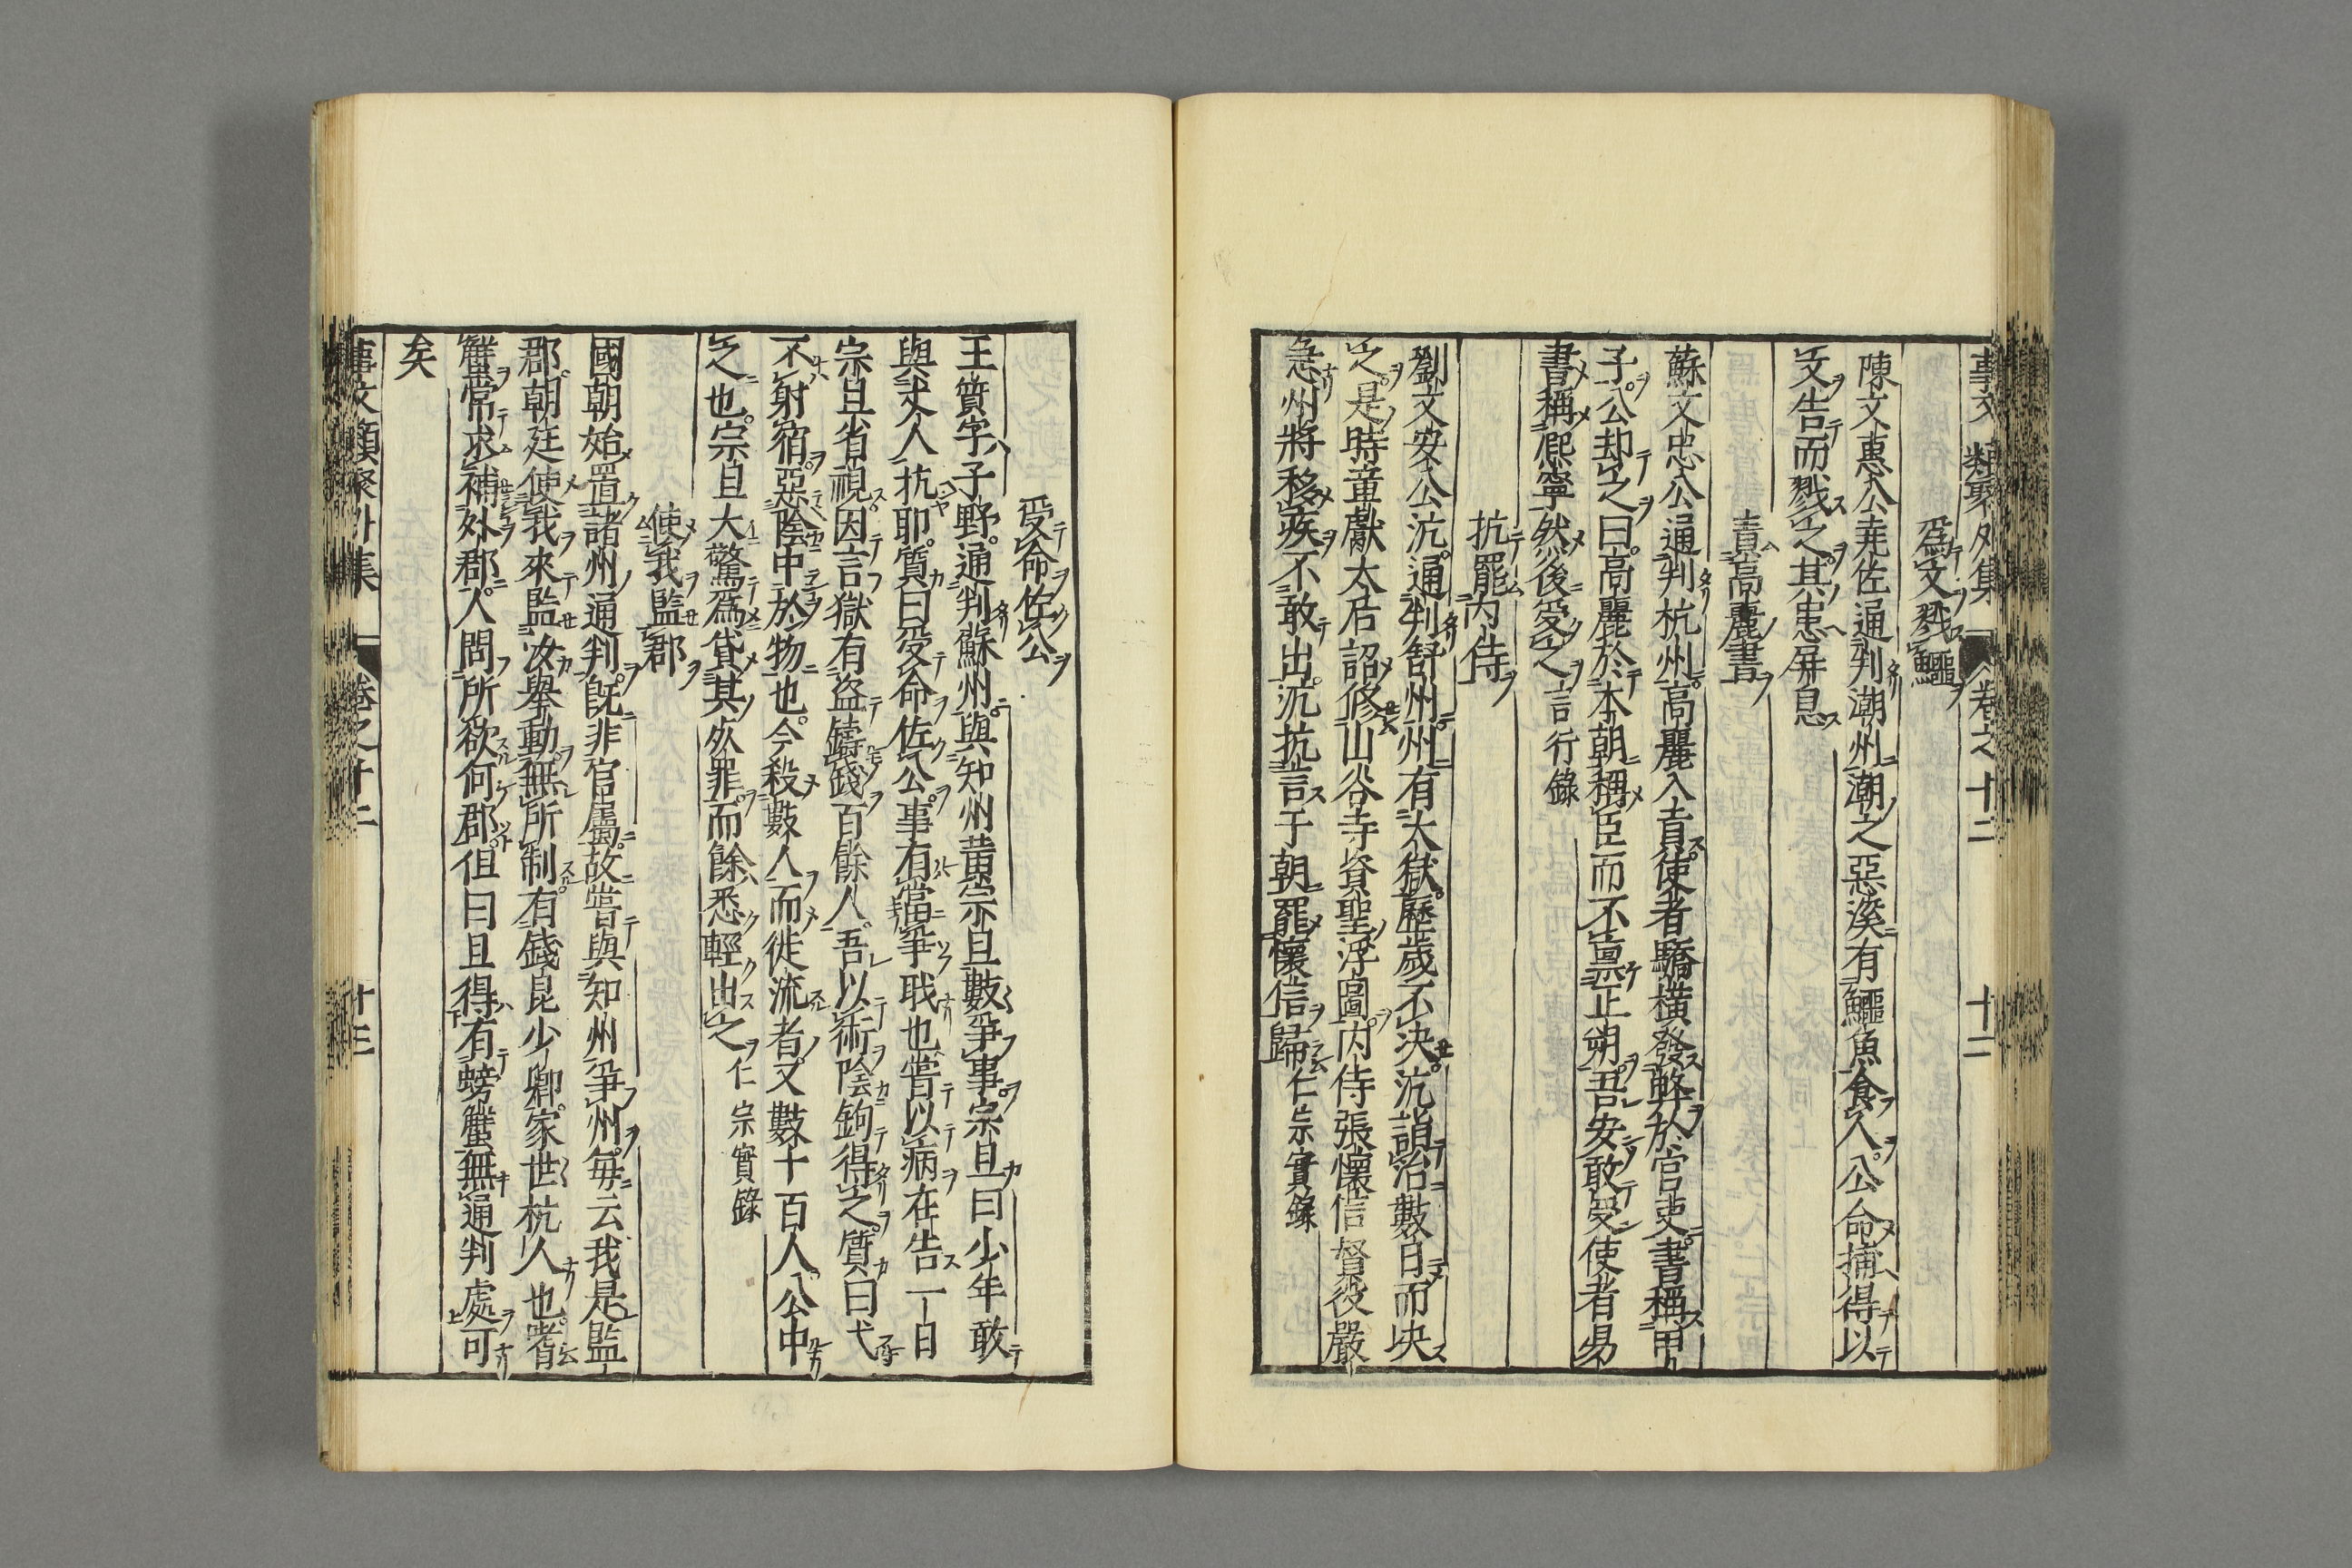 事文類聚外集 卷之十二 十二
爲文戮鱷
陳文惠公堯佐通判潮州潮之惡溪有鱷魚食人公命捕得以
文告而戮之其患屏息
責高麗書
蘇文忠公通判杭州高麗入貢使者驕橫發弊於官吏書稱甲
子公却之曰高麗於本朝稱臣而不禀正朔吾安敢受使者易
書稱熈寧然後受之言行錄
抗罷內侍
劉文安公沆通判舒州州有大獄歷歲不決沆詣治數日而决
之是時章獻太后詔修山谷寺資聖浮圖內侍張懷信督役嚴
急州將移疾不敢出沆抗言于朝罷懷信歸仁宗實錄
受命佐公
王質字子野通判蘇州與知州黃宗旦數爭事宗旦曰少年敢
與丈人抗耶質曰受命佐公事有當爭職也嘗以病在告一日
宗旦省視因言獄有盜鑄錢百餘人吾以術陰鉤得之質曰弋
不射宿惡陰中於物也今殺數人而徙流者又數十百人公中
之也宗旦大驚爲貸其死罪而餘悉輕出之仁宗實錄
使我監郡
國朝始置諸州通判旣非官屬故嘗與知州爭州每云我是監
郡朝廷使我來監汝舉動無所制有錢昆少卿家世杭人也嗜
蟹常求補外郡人問所欲何郡但曰且得有螃蟹無通判處可
矣
事文類聚外集 卷之十二 十三